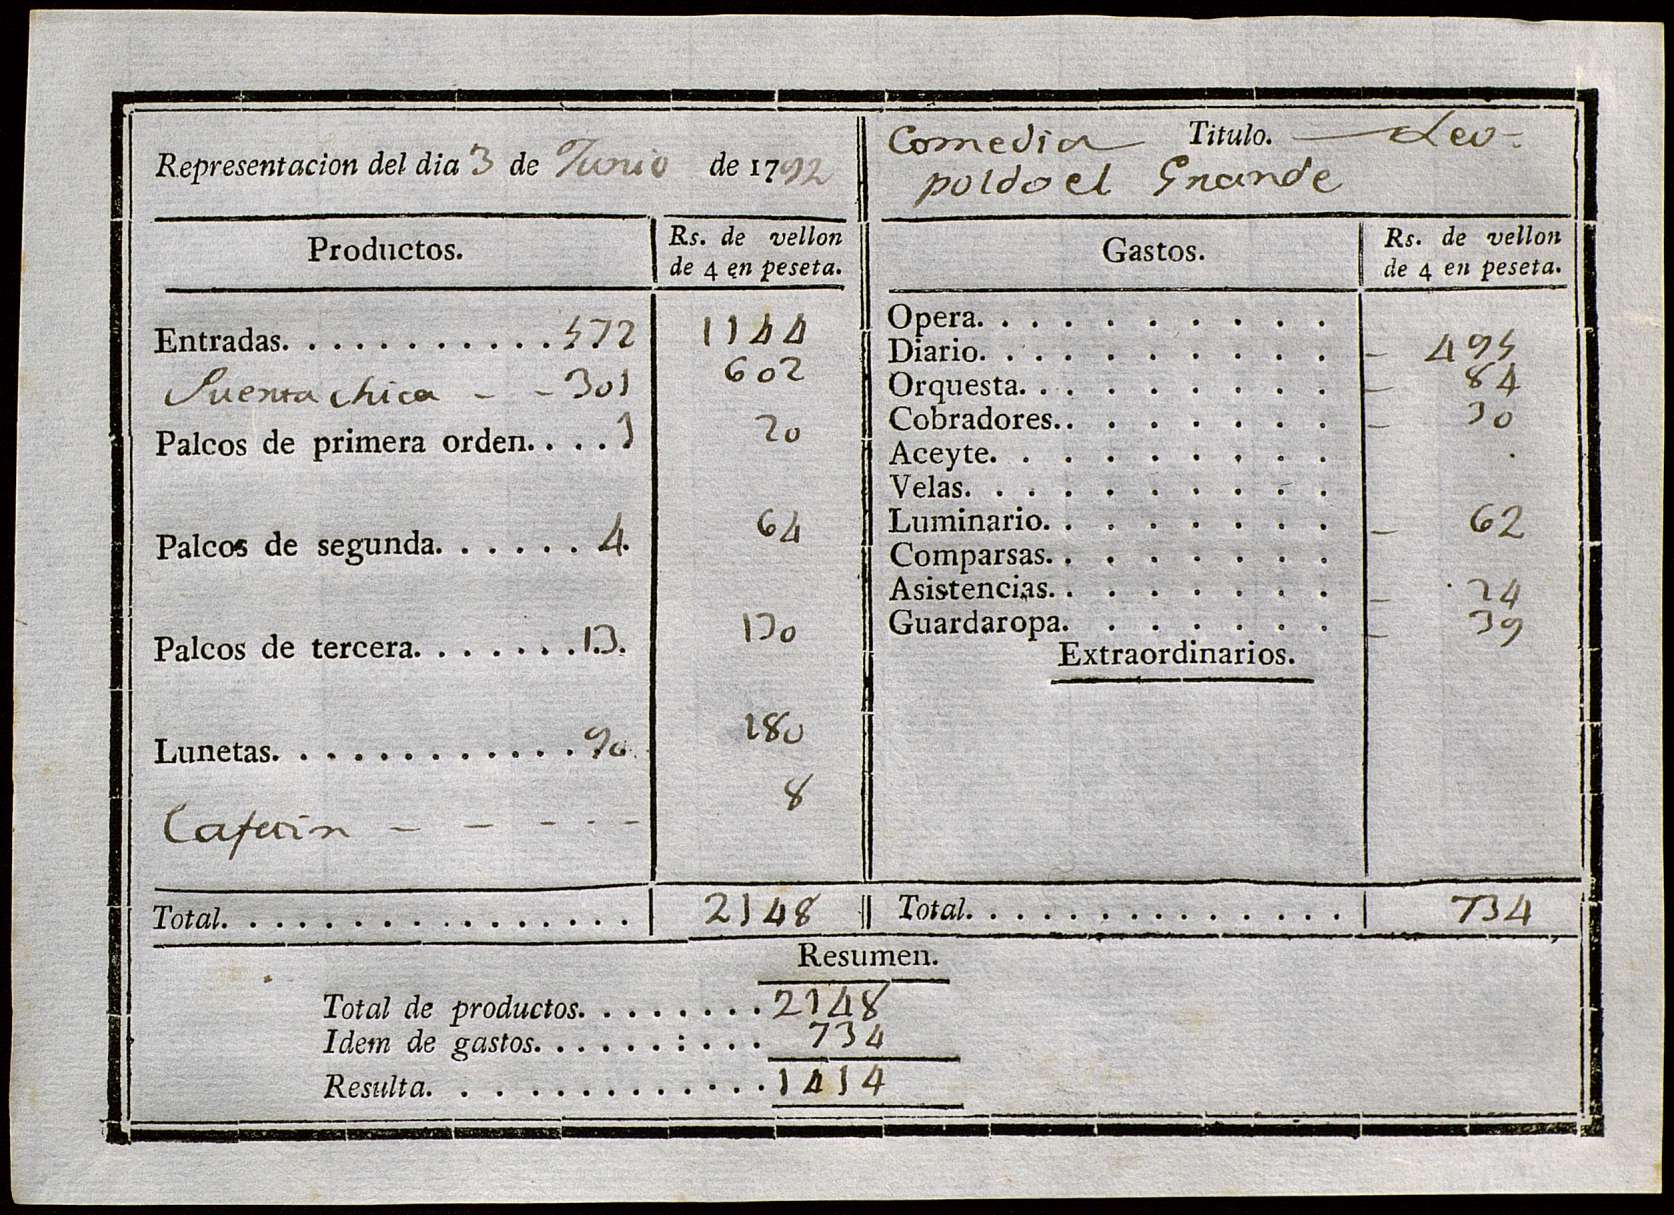 Representacion del dia 3 de Junio de 1792
Comedia Titulo. — Leo-
poldo el Grande
Productos.
Rs. de vellon
de 4 en peseta.
Entradas. . . . . . . . . . . . 572 1144
Puerta chica - - 301 602
Palcos de primera orden. . . . 1 20
Palcos de segunda. . . . . . . 4. 64
Palcos de tercera. . . . . . . . 13. 130
Lunetas. . . . . . . . . . . . . 90. 180
Cafetin - - - - - 8
Total. . . . . . . . . . . . . . . . 2148
Gastos.
Rs. de vellon
de 4 en peseta.
Opera. . . . . . . . . .
Diario. . . . . . . . . . - 495
Orquesta. . . . . . . . . - 84
Cobradores. . . . . . . . - 30
Aceyte. . . . . . . . . .
Velas. . . . . . . . . .
Luminario. . . . . . . . - 62
Comparsas. . . . . . . .
Asistencias. . . . . . . . - 24
Guardaropa. . . . . . . - 39
Extraordinarios.
Total. . . . . . . . . . . . . . . 734
Resumen.
Total de productos. . . . . . . . 2148
Idem de gastos. . . . . . : . . . 734
Resulta. . . . . . . . . . . . . 1414